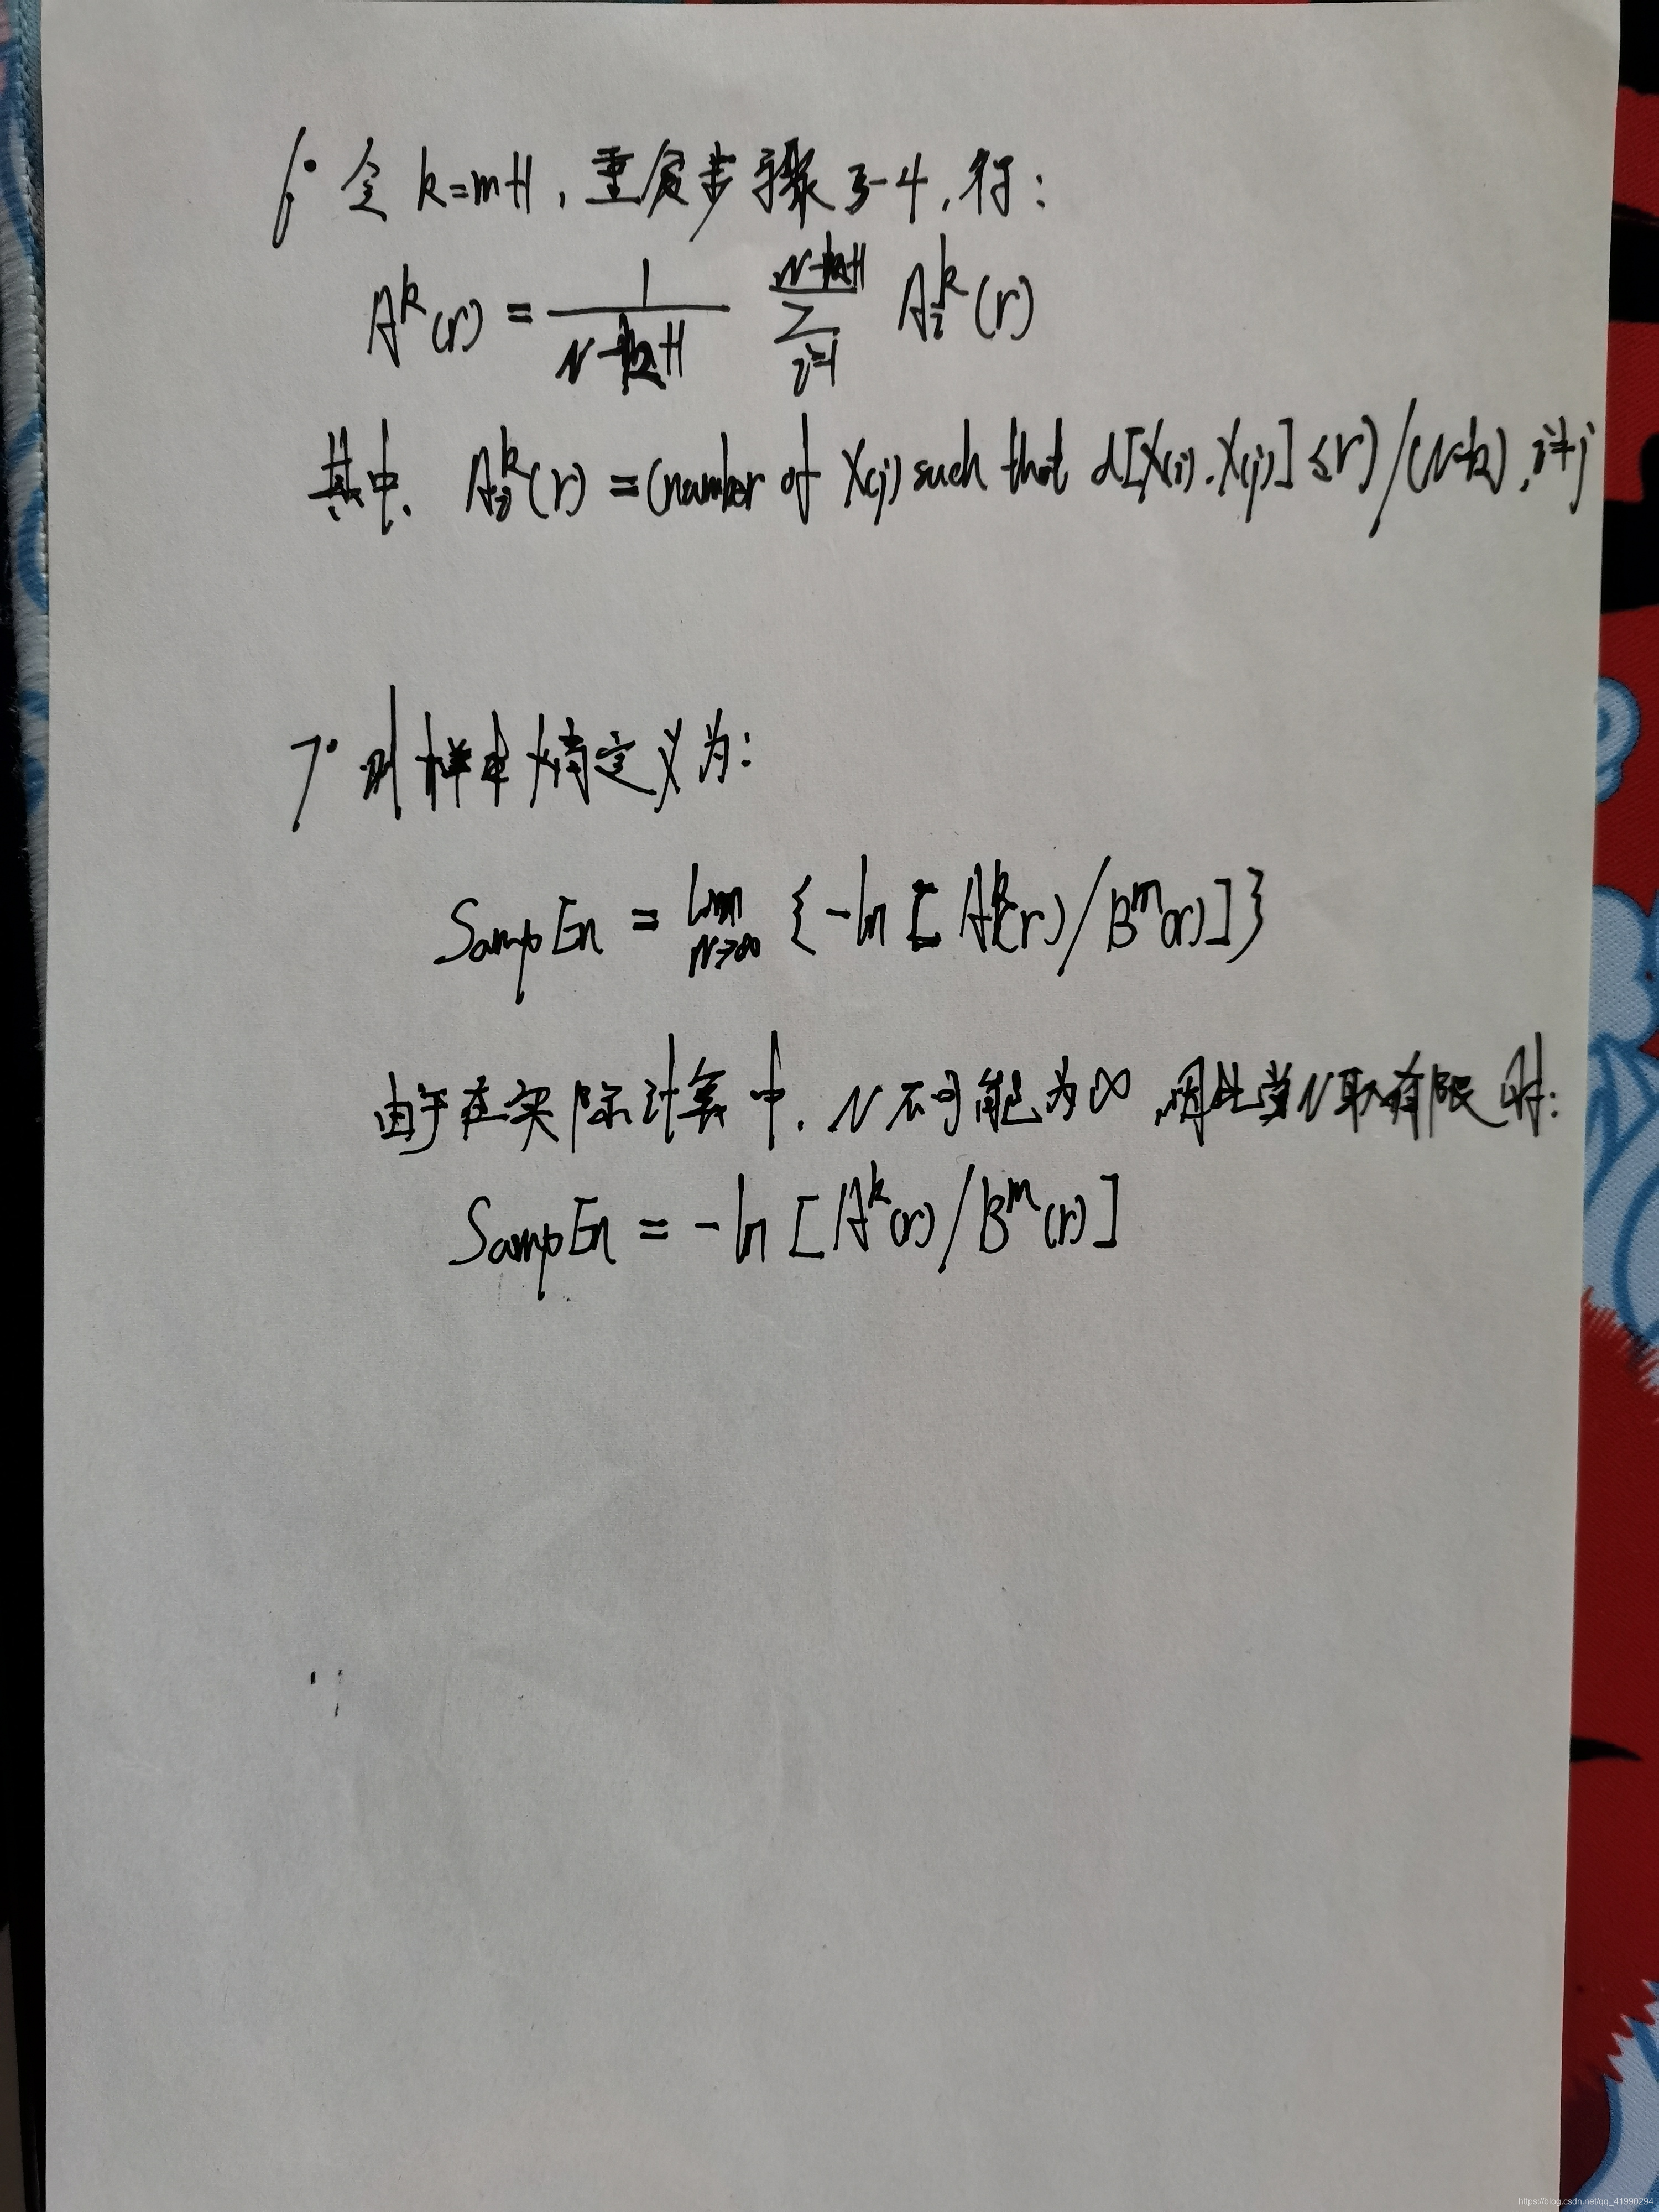 6° 令 k=m+1, 重复步骤3-4, 得:
A^k(r) = \frac{1}{N-k+1} \sum_{i=1}^{N-k+1} A_i^k(r)
其中, A_i^k(r) = (number of X(j) such that d[X(i), X(j)] ≤ r)/(N-k), i≠j
7° 则样本熵定义为:
SampEn = \lim_{N→∞} {-ln[A^k(r)/B^m(r)]}
由于在实际计算中, N不可能为∞, 因此当N取有限时:
SampEn = -ln[A^k(r)/B^m(r)]
https://blog.csdn.net/qq_41990294